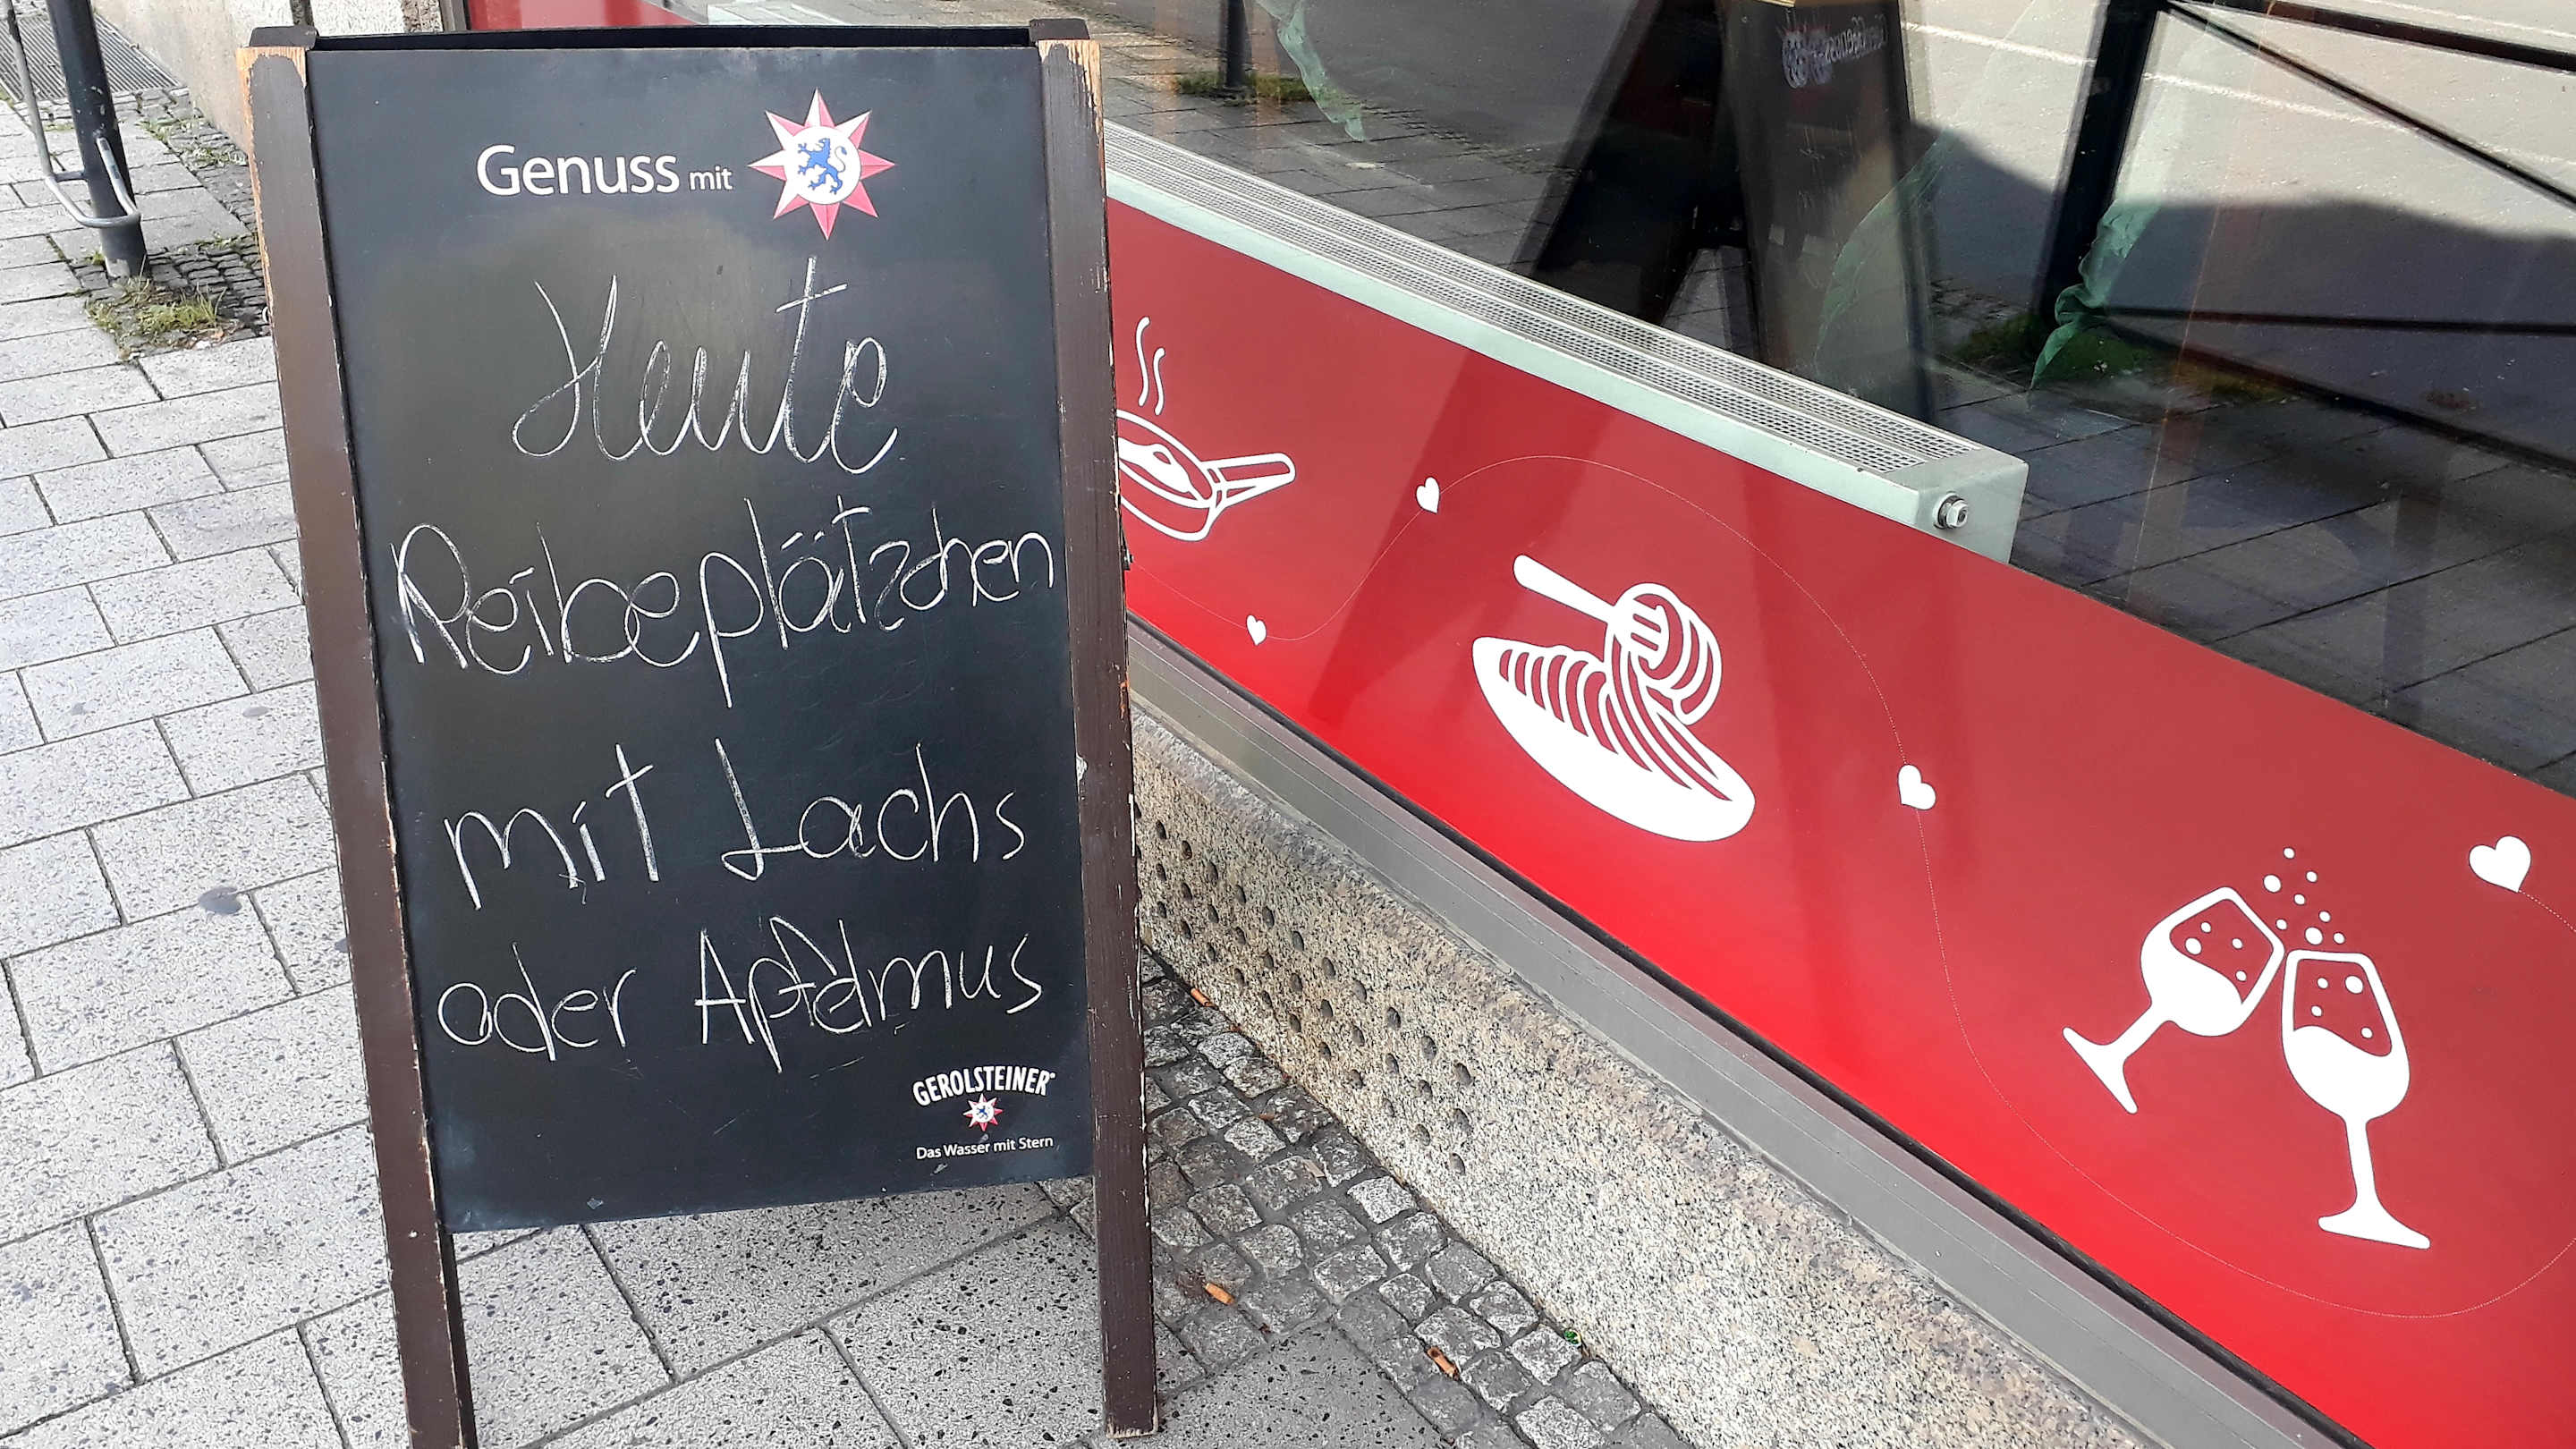 Genuss mit
Heute
Reibeplätzchen
mit Lachs
oder Apfelmus
GEROLSTEINER
Das Wasser mit Stern